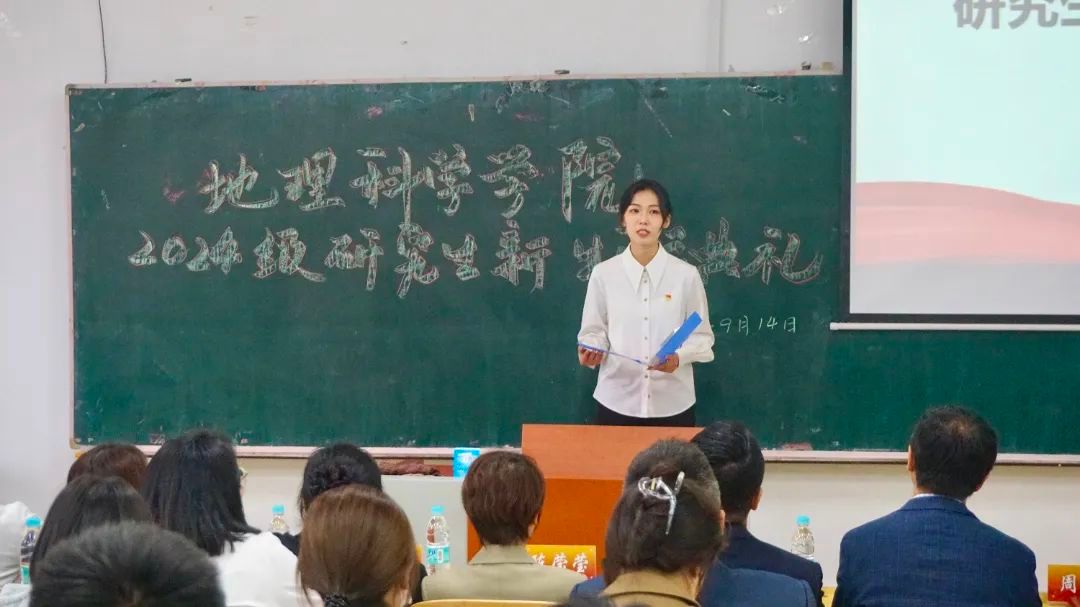 研究生
地理科学学院
2024级研究生新生 典礼
9月14日
莹莹
周